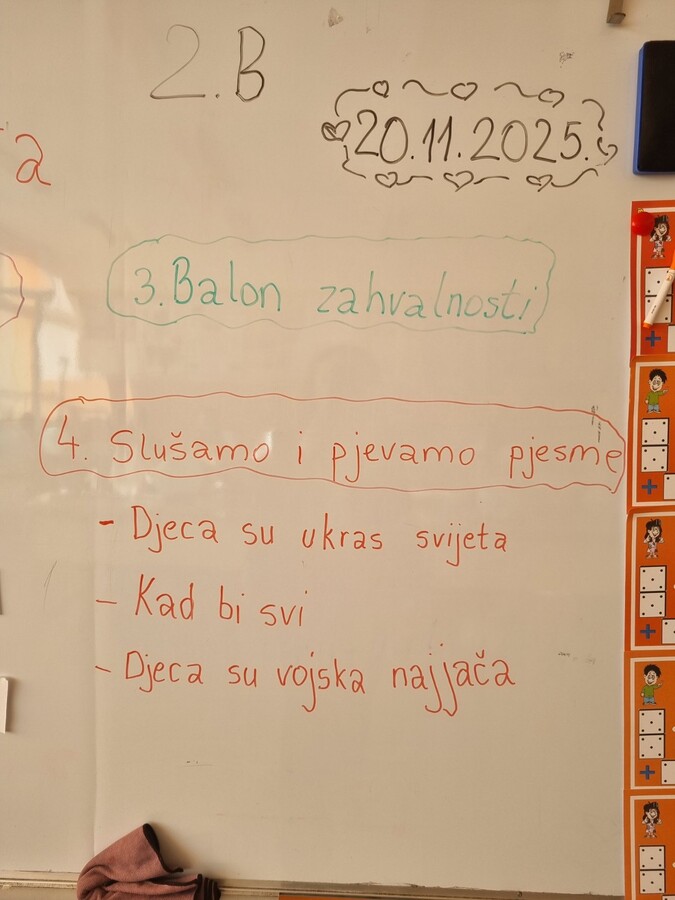 2.B
20.11.2025.
a
3. Balon zahvalnosti
4. Slušamo i pjevamo pjesme
- Djeca su ukras svijeta
- Kad bi svi
- Djeca su vojska najjača
+
+
+
+